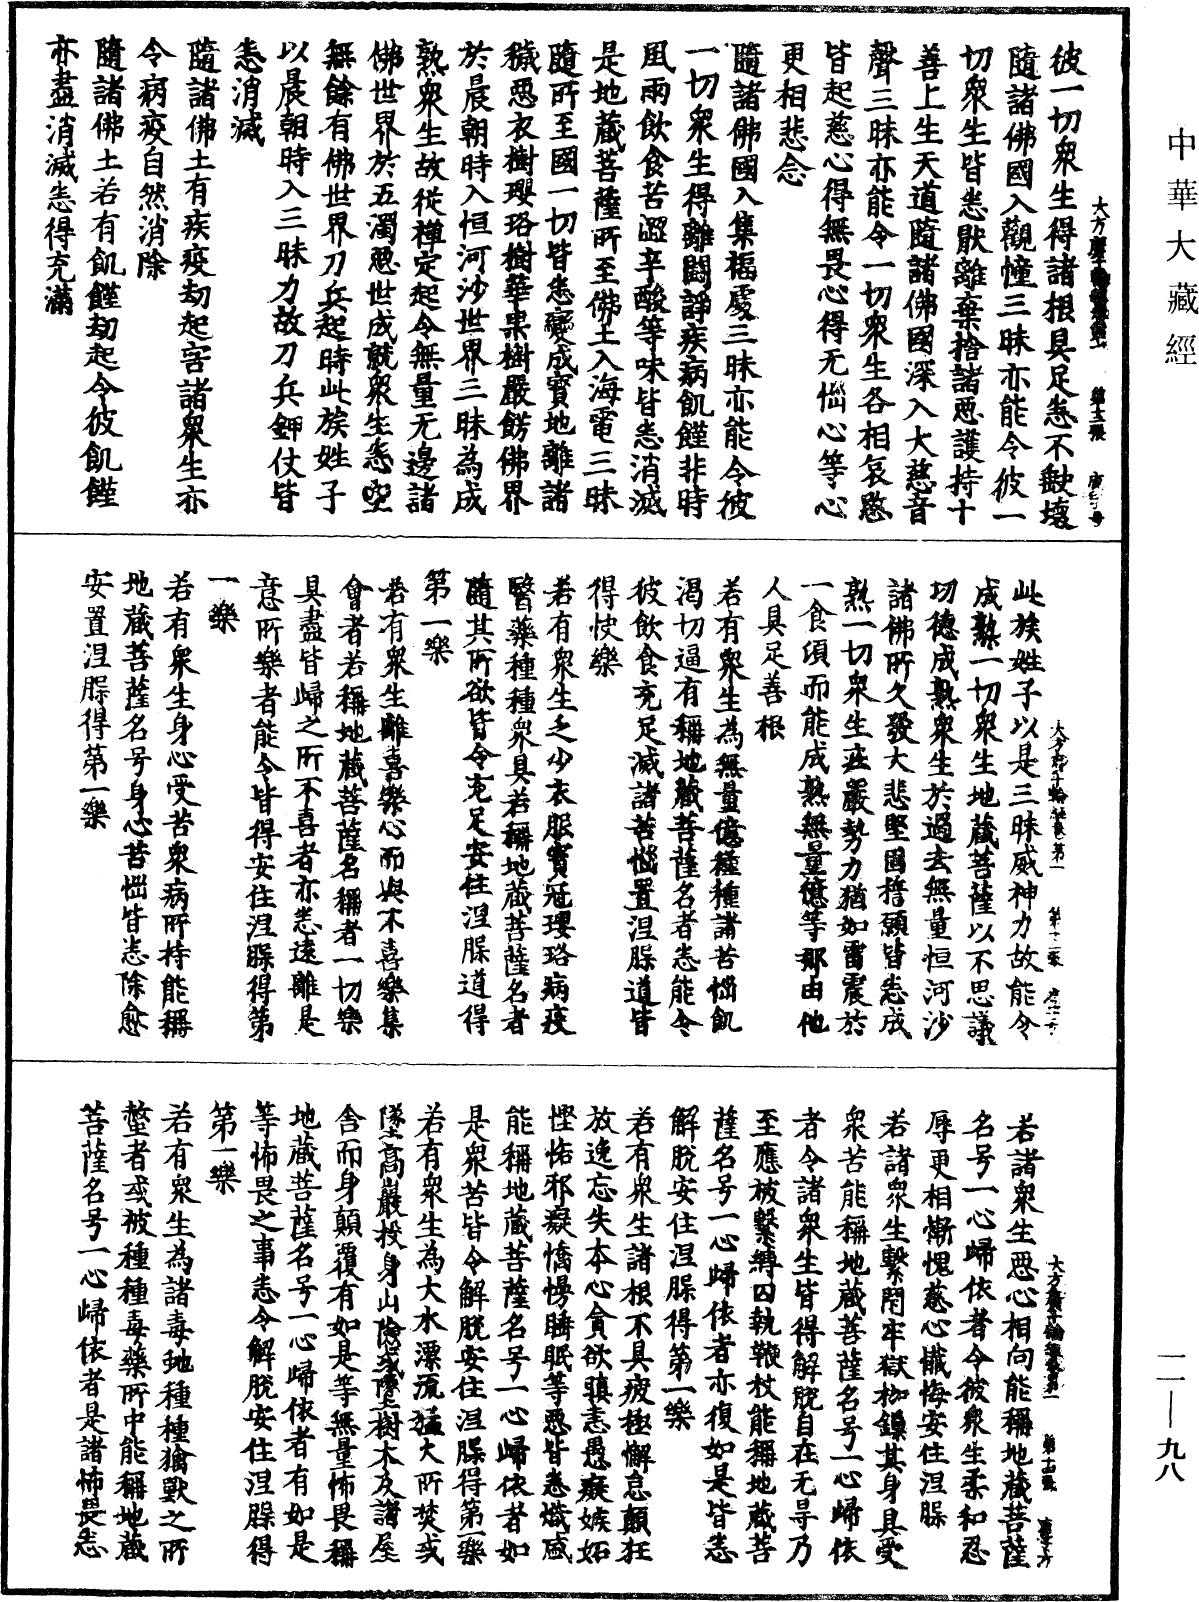 中華大藏經
彼一切衆生得諸根具足悉不缺壞
隨諸佛國入觀幢三昧亦能令彼一
切衆生皆悉猒離棄捨諸惡護持十
善上生天道隨諸佛國深入大慈音
聲三昧亦能令一切衆生各相哀愍
皆起慈心得無畏心得无惱心等心
更相悲念
隨諸佛國入集福處三昧亦能令彼
一切衆生得離鬪諍疾病飢饉非時
風雨飲食苦澀辛酸等味皆悉消滅
是地藏菩薩所至佛土入海電三昧
隨所至國一切皆悉變成寶地離諸
穢惡衣樹瓔珞樹華果樹嚴餝佛界
於晨朝時入恒河沙世界三昧為成
熟衆生故從禪定起令無量无邊諸
佛世界於五濁惡世成就衆生悉
無餘有佛世界刀兵起時此族姓子
以晨朝時入三昧力故刀兵鉀仗皆
悉消滅
隨諸佛土有疾疫劫起害諸衆生亦
令病疫自然消除
隨諸佛土若有飢饉劫起令彼飢饉
亦盡消滅悉得充滿
此族姓子以是三昧威神力故能令
成熟一切衆生地藏菩薩以不思議
功德成熟衆生於過去無量恒河沙
諸佛所久發大悲堅固誓願皆悉成
熟一切衆生莊嚴勢力猶如雷震於
一食須而能成熟無量億等那由他
人具足善根
若有衆生為無量億種種諸苦惱飢
渴切逼有稱地藏菩薩名者悉能令
彼飲食充足滅諸苦惱置涅槃道皆
得快樂
若有衆生乏少衣服寶冠瓔珞病疫
醫藥種種衆具若稱地藏菩薩名者
隨其所欲皆令充足安住涅槃道得
第一樂
若有衆生離喜樂心而與不喜樂集
會者若稱地藏菩薩名稱者一切樂
具盡皆歸之所不喜者亦悉遠離是
意所樂者能令皆得安住涅槃得第
一樂
若有衆生身心受苦衆病所持能稱
地藏菩薩名号身心苦惱皆悉除愈
安置涅槃得第一樂
若諸衆生惡心相向能稱地藏菩薩
名号一心歸依者令彼衆生柔和忍
辱更相慚愧慈心懺悔安住涅槃
若諸衆生繫閉牢獄枷鎖其身具受
衆苦能稱地藏菩薩名号一心歸依
者令諸衆生皆得解脫自在无㝵乃
至應被繫縛囚執鞭杖能稱地藏菩
薩名号一心歸依者亦復如是皆悉
解脫安住涅槃得第一樂
若有衆生諸根不具疲極懈怠顛狂
放逸忘失本心貪欲瞋恚愚癡嫉妬
慳悋邪癡憍慢睡眠等惡皆悉熾盛
能稱地藏菩薩名号一心歸依者如
是衆苦皆令解脫安住涅槃得第一樂
若有衆生為大水漂流猛火所焚或
墜高巖投身山險或墜樹木及諸屋
舍而身顛覆有如是等無量怖畏稱
地藏菩薩名号一心歸依者有如是
等怖畏之事悉令解脫安住涅槃得
第一樂
若有衆生為諸毒虵種種獫獸之所
螫者或被種種毒藥所中能稱地藏
菩薩名号一心歸依者是諸怖畏悉
一一—九八